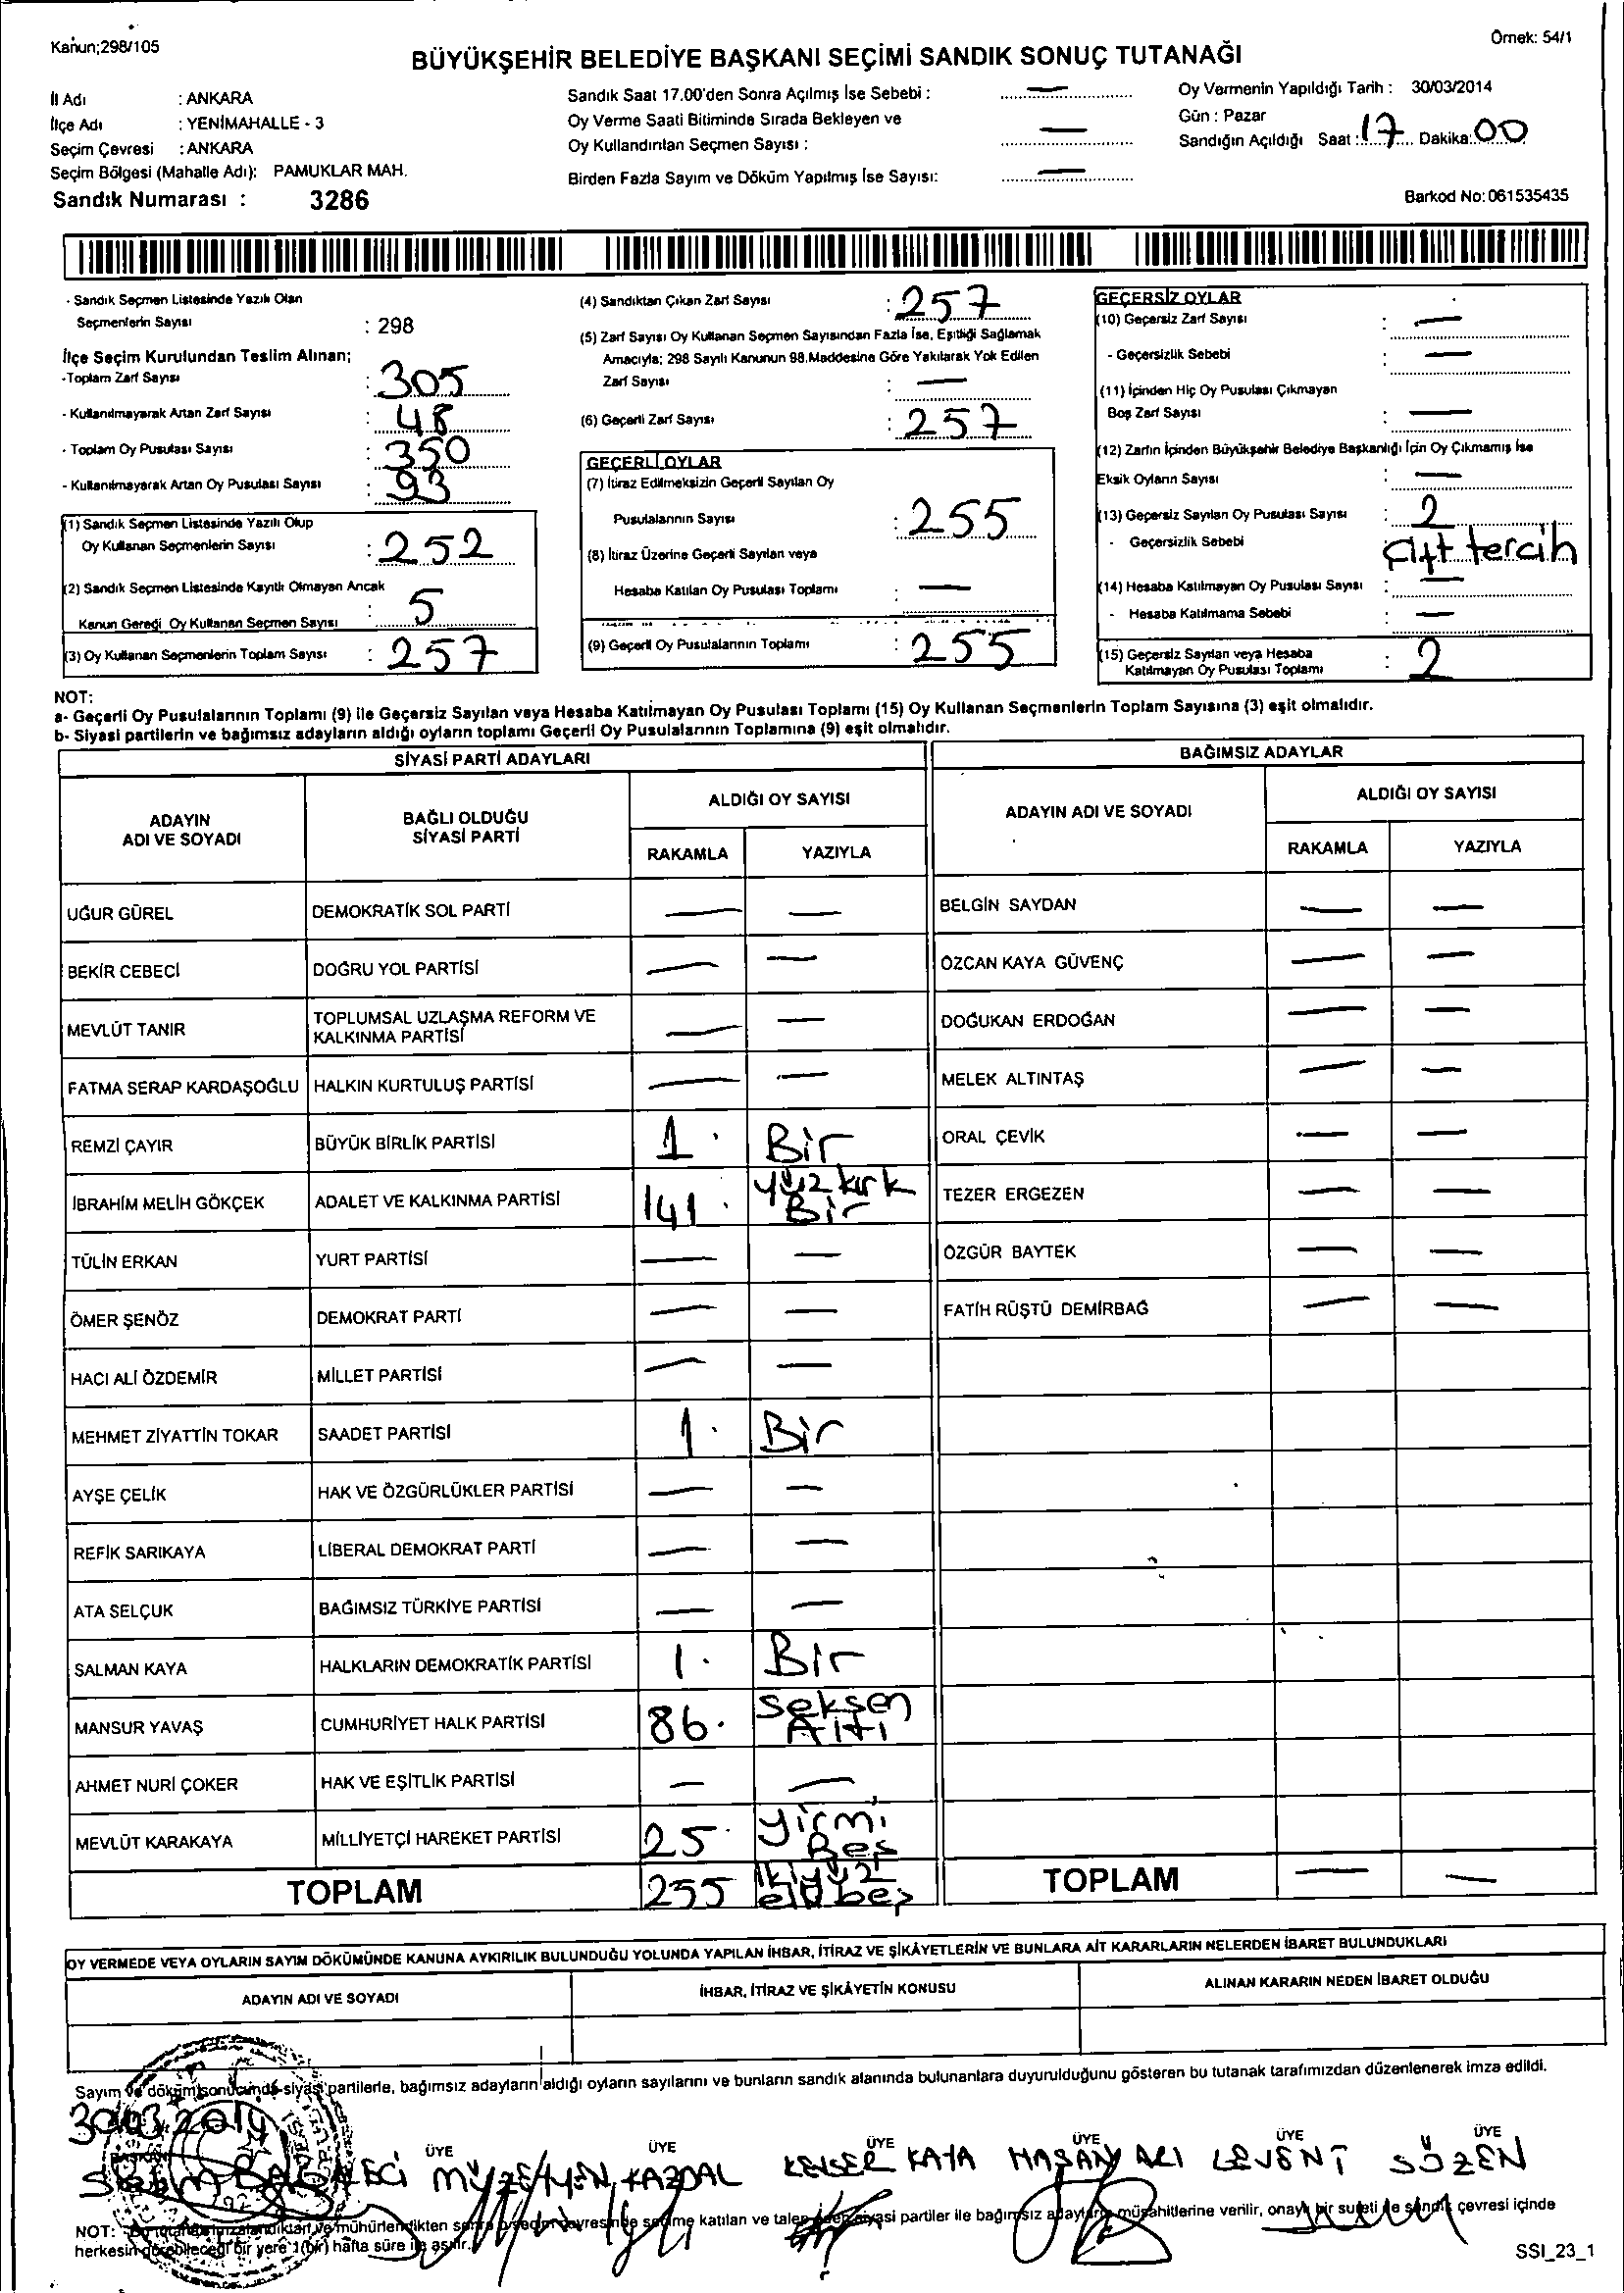 Kanun;298/105
Örnek: 54/1
BÜYÜKŞEHİR BELEDİYE BAŞKANI SEÇİMİ SANDIK SONUÇ TUTANAĞI
İl Adı : ANKARA
İlçe Adı : YENİMAHALLE - 3
Seçim Çevresi : ANKARA
Seçim Bölgesi (Mahalle Adı): PAMUKLAR MAH.
Sandık Numarası : 3286
Sandık Saat 17.00'den Sonra Açılmış İse Sebebi : —
Oy Verme Saati Bitiminde Sırada Bekleyen ve
Oy Kullandırılan Seçmen Sayısı : —
Birden Fazla Sayım ve Döküm Yapılmış İse Sayısı: —
Oy Vermenin Yapıldığı Tarih : 30/03/2014
Gün : Pazar
Sandığın Açıldığı Saat : 17 Dakika: 00
Barkod No: 061535435
- Sandık Seçmen Listesinde Yazılı Olan
Seçmenlerin Sayısı : 298
İlçe Seçim Kurulundan Teslim Alınan;
-Toplam Zarf Sayısı : 305
- Kullanılmayarak Artan Zarf Sayısı : 48
- Toplam Oy Pusulası Sayısı : 350
- Kullanılmayarak Artan Oy Pusulası Sayısı : 93
(1) Sandık Seçmen Listesinde Yazılı Olup
Oy Kullanan Seçmenlerin Sayısı : 252
(2) Sandık Seçmen Listesinde Kayıtlı Olmayan Ancak
Kanun Gereği Oy Kullanan Seçmen Sayısı : 5
(3) Oy Kullanan Seçmenlerin Toplam Sayısı : 257
(4) Sandıktan Çıkan Zarf Sayısı : 257
(5) Zarf Sayısı Oy Kullanan Seçmen Sayısından Fazla İse, Eşitliği Sağlamak
Amacıyla; 298 Sayılı Kanunun 98.Maddesine Göre Yakılarak Yok Edilen
Zarf Sayısı : —
(6) Geçerli Zarf Sayısı : 257
GEÇERLİ OYLAR
(7) İtiraz Edilmeksizin Geçerli Sayılan Oy
Pusulalarının Sayısı : 255
(8) İtiraz Üzerine Geçerli Sayılan veya
Hesaba Katılan Oy Pusulası Toplamı : —
(9) Geçerli Oy Pusulalarının Toplamı : 255
GEÇERSİZ OYLAR
(10) Geçersiz Zarf Sayısı : —
- Geçersizlik Sebebi : —
(11) İçinden Hiç Oy Pusulası Çıkmayan
Boş Zarf Sayısı : —
(12) Zarfın İçinden Büyükşehir Belediye Başkanlığı İçin Oy Çıkmamış İse
Eksik Oyların Sayısı : —
(13) Geçersiz Sayılan Oy Pusulası Sayısı : 2
- Geçersizlik Sebebi : Çift tercih
(14) Hesaba Katılmayan Oy Pusulası Sayısı : —
- Hesaba Katılmama Sebebi : —
(15) Geçersiz Sayılan veya Hesaba
Katılmayan Oy Pusulası Toplamı : 2
NOT:
a- Geçerli Oy Pusulalarının Toplamı (9) ile Geçersiz Sayılan veya Hesaba Katılmayan Oy Pusulası Toplamı (15) Oy Kullanan Seçmenlerin Toplam Sayısına (3) eşit olmalıdır.
b- Siyasi partilerin ve bağımsız adayların aldığı oyların toplamı Geçerli Oy Pusulalarının Toplamına (9) eşit olmalıdır.
SİYASİ PARTİ ADAYLARI
ADAYIN ADI VE SOYADI BAĞLI OLDUĞU SİYASİ PARTİ ALDIĞI OY SAYISI
RAKAMLA YAZIYLA
UĞUR GÜREL DEMOKRATİK SOL PARTİ — —
BEKİR CEBECİ DOĞRU YOL PARTİSİ — —
MEVLÜT TANIR TOPLUMSAL UZLAŞMA REFORM VE KALKINMA PARTİSİ — —
FATMA SERAP KARDAŞOĞLU HALKIN KURTULUŞ PARTİSİ — —
REMZİ ÇAYIR BÜYÜK BİRLİK PARTİSİ 1 Bir
İBRAHİM MELİH GÖKÇEK ADALET VE KALKINMA PARTİSİ 141 yüz kırk Bir
TÜLİN ERKAN YURT PARTİSİ — —
ÖMER ŞENÖZ DEMOKRAT PARTİ — —
HACI ALİ ÖZDEMİR MİLLET PARTİSİ — —
MEHMET ZİYATTİN TOKAR SAADET PARTİSİ 1 Bir
AYŞE ÇELİK HAK VE ÖZGÜRLÜKLER PARTİSİ — —
REFİK SARIKAYA LİBERAL DEMOKRAT PARTİ — —
ATA SELÇUK BAĞIMSIZ TÜRKİYE PARTİSİ — —
SALMAN KAYA HALKLARIN DEMOKRATİK PARTİSİ 1 Bir
MANSUR YAVAŞ CUMHURİYET HALK PARTİSİ 86 seksen Altı
AHMET NURİ ÇOKER HAK VE EŞİTLİK PARTİSİ — —
MEVLÜT KARAKAYA MİLLİYETÇİ HAREKET PARTİSİ 25 yirmi Beş
TOPLAM 255 ikiyüz elli beş
BAĞIMSIZ ADAYLAR
ADAYIN ADI VE SOYADI ALDIĞI OY SAYISI
RAKAMLA YAZIYLA
BELGİN SAYDAN — —
ÖZCAN KAYA GÜVENÇ — —
DOĞUKAN ERDOĞAN — —
MELEK ALTINTAŞ — —
ORAL ÇEVİK — —
TEZER ERGEZEN — —
ÖZGÜR BAYTEK — —
FATİH RÜŞTÜ DEMİRBAĞ — —
TOPLAM — —
OY VERMEDE VEYA OYLARIN SAYIM DÖKÜMÜNDE KANUNA AYKIRILIK BULUNDUĞU YOLUNDA YAPILAN İHBAR, İTİRAZ VE ŞİKÂYETLERİN VE BUNLARA AİT KARARLARIN NELERDEN İBARET BULUNDUKLARI
ADAYIN ADI VE SOYADI İHBAR, İTİRAZ VE ŞİKÂYETİN KONUSU ALINAN KARARIN NEDEN İBARET OLDUĞU
Sayım ve döküm sonucunda siyasi partilerle, bağımsız adayların aldığı oyların sayılarını ve bunların sandık alanında bulunanlara duyurulduğunu gösteren bu tutanak tarafımızdan düzenlenerek imza edildi.
30.03.2014
BAŞKAN ÜYE ÜYE ÜYE ÜYE ÜYE ÜYE
MÜZEYYEN KAZDAL KAYA HASAN ALI LEVENT SÖZEN
NOT: Bu tutanak imzalandıktan ve mühürlendikten sonra o seçim çevresinde seçime katılan ve talep eden siyasi partiler ile bağımsız adayların müşahitlerine verilir, onaylı bir sureti de sandık çevresi içinde
herkesin görebileceği bir yere 1(bir) hafta süre ile asılır.
SSI_23_1